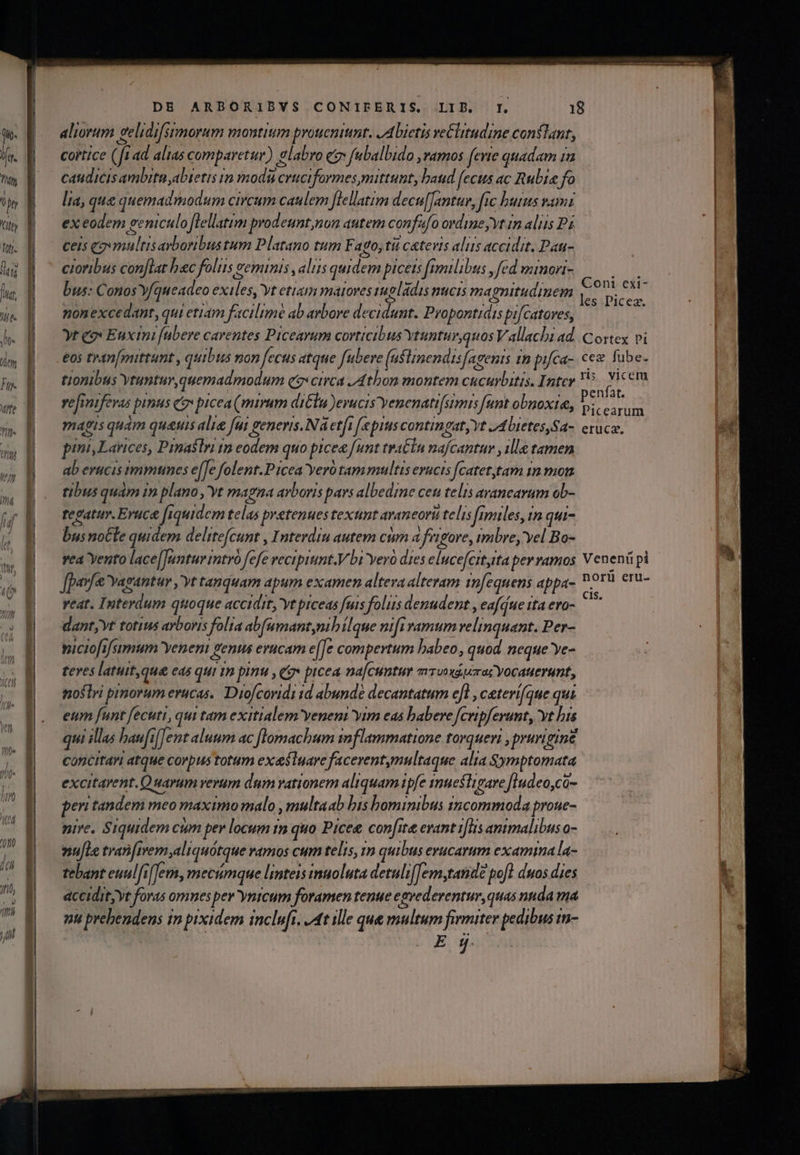 DE ARBORIBVS CONIFERIS. LIB. I. 18
aliorum gelidiſsimorum montium proueniunt. Abietis rectitudine constant,
cortice (ſi ad alias comparetur) glabro & ſubalbido, ramos ferie quadam in
caudicis ambitu, abietis in modū cruciformes, mittunt, haud ſecus ac Rubiæ fo
lia, quæ quemadmodum circum caulem ſtellatim decuſſantur, ſic huius rami
ex eodem geniculo ſtellatim prodeunt, non autem confuſo ordine, vt in aliis Pi
ceis & multis arboribus tum Platano tum Fago, tū cæteris aliis accidit. Pau-
cioribus conſtat hæc foliis geminis, aliis quidem piceis ſimilibus, ſed minori-
bus: Conos vſqueadeo exiles, vt etiam maiores iuglādis nucis magnitudinem
non excedant, qui etiam facilimè ab arbore decidunt. Propontidis piſcatores,
vt & Euxini ſubere carentes Picearum corticibus vtuntur, quos Vallachi ad
eos tranſmittunt, quibus non ſecus atque ſubere ſustinendis ſagenis in piſca-
tionibus vtuntur, quemadmodum & circa Athon montem cucurbitis. Inter
reſiniferas pinus & picea (mirum dictu) erucis venenatiſsimis ſunt obnoxiæ,
magis quàm quæuis aliæ ſui generis. Nā etſi ſæpius contingat, vt Abietes, Sa-
pini, Larices, Pinastri in eodem quo piceæ ſunt tractu naſcantur, illæ tamen
ab erucis immunes eſſe ſolent. Picea verò tam multis erucis ſcatet, tam in mon
tibus quàm in plano, vt magna arboris pars albedine ceu telis aranearum ob-
tegatur. Erucæ ſiquidem telas prætenues texunt araneorū telis ſimiles, in qui-
bus nocte quidem deliteſcunt, Interdiu autem cùm à frigore, imbre, vel Bo-
rea vento laceſſuntur intrò ſeſe recipiunt. Vbi verò dies eluceſcit, ita per ramos
ſparſæ vagantur, vt tanquam apum examen altera alteram inſequens appa-
reat. Interdum quoque accidit, vt piceas ſuis foliis denudent, eaſque ita ero-
dant, vt totius arboris folia abſumant, nihilque niſi ramum relinquant. Per-
nicioſiſsimum veneni genus erucam eſſe compertum habeo, quod neque ve-
teres latuit, quæ eas qui in pinu, & picea naſcuntur πιτυοκάμπας vocauerunt,
nostri pinorum erucas. Dioſcoridi id abundè decantatum eſt, cæteriſque qui
eum ſunt ſecuti, qui tam exitialem veneni vim eas habere ſcripſerunt, vt his
qui illas hauſiſſent aluum ac ſtomachum inflammatione torqueri, prurigine
concitari atque corpus totum exæstuare facerent, multaque alia Symptomata
excitarent. Quarum rerum dum rationem aliquam ipſe inuestigare ſtudeo, cō-
peri tandem meo maximo malo, multa ab his hominibus incommoda proue-
nire. Siquidem cùm per locum in quo Piceæ conſitæ erant iſtis animalibus o-
nuſtæ tranſirem, aliquótque ramos cum telis, in quibus erucarum examina la-
tebant euulſiſſem, mecúmque linteis inuoluta detuliſſem, tandē poſt duos dies
accidit, vt foras omnes per vnicum foramen tenue egrederentur, quas nuda ma
nu prehendens in pixidem incluſi. At ille quæ multum firmiter pedibus in-
E ij.
Coni exi-
les Piceæ.
Cortex Pi
ceæ ſube-
ris vicem
penſat.
Picearum
erucæ.
Venenū pi
norū eru-
cis.